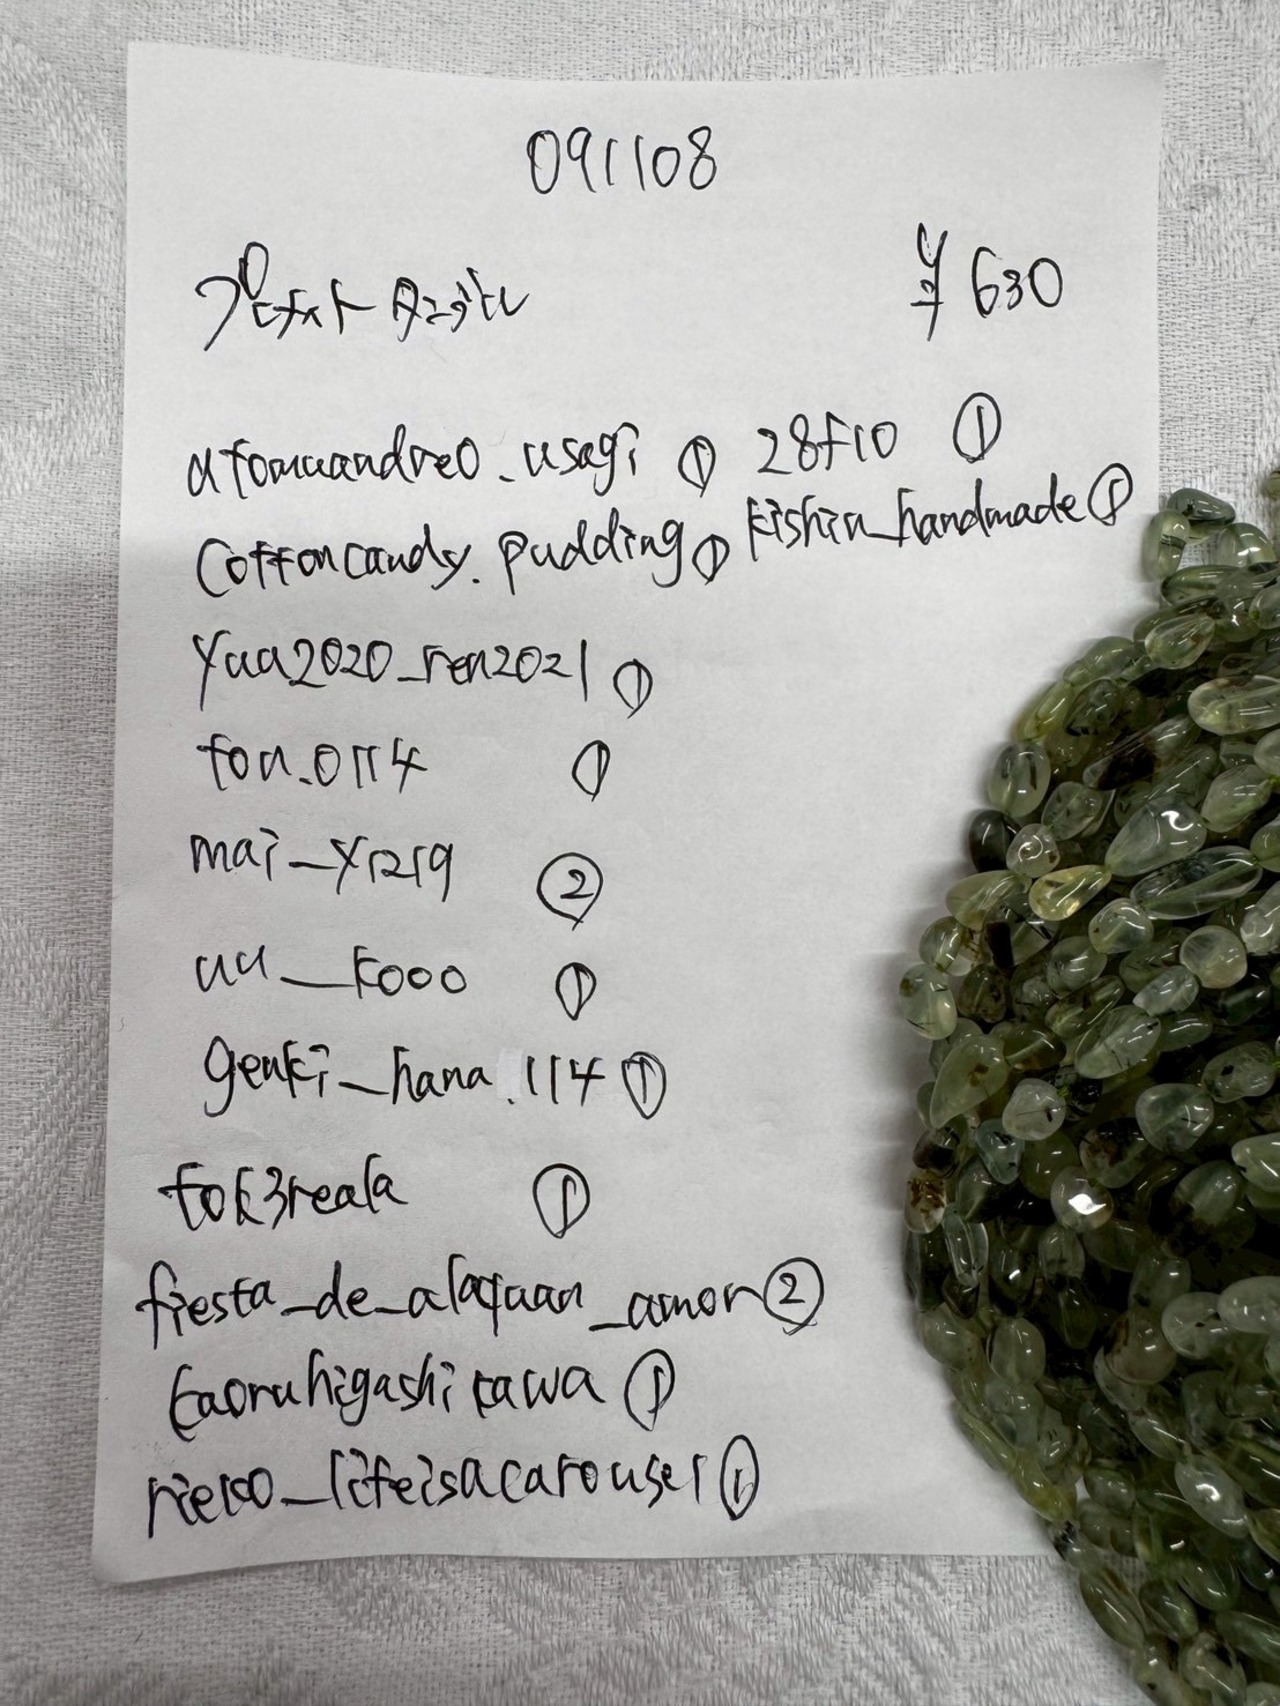 091108
プレナイト タンブル ¥630
atomuandreo_usagi ① 28f10 ①
cottoncandy.pudding ① kishin_handmade ①
yaa2020_ren2021 ①
tou.0114 ①
mai_y1219 ②
uu__kooo ①
genki_hana.114 ①
tok3reala ①
fiesta_de_alaquan_amor ②
kaoruhigashikawa ①
rieko_lifeisacarousel ①